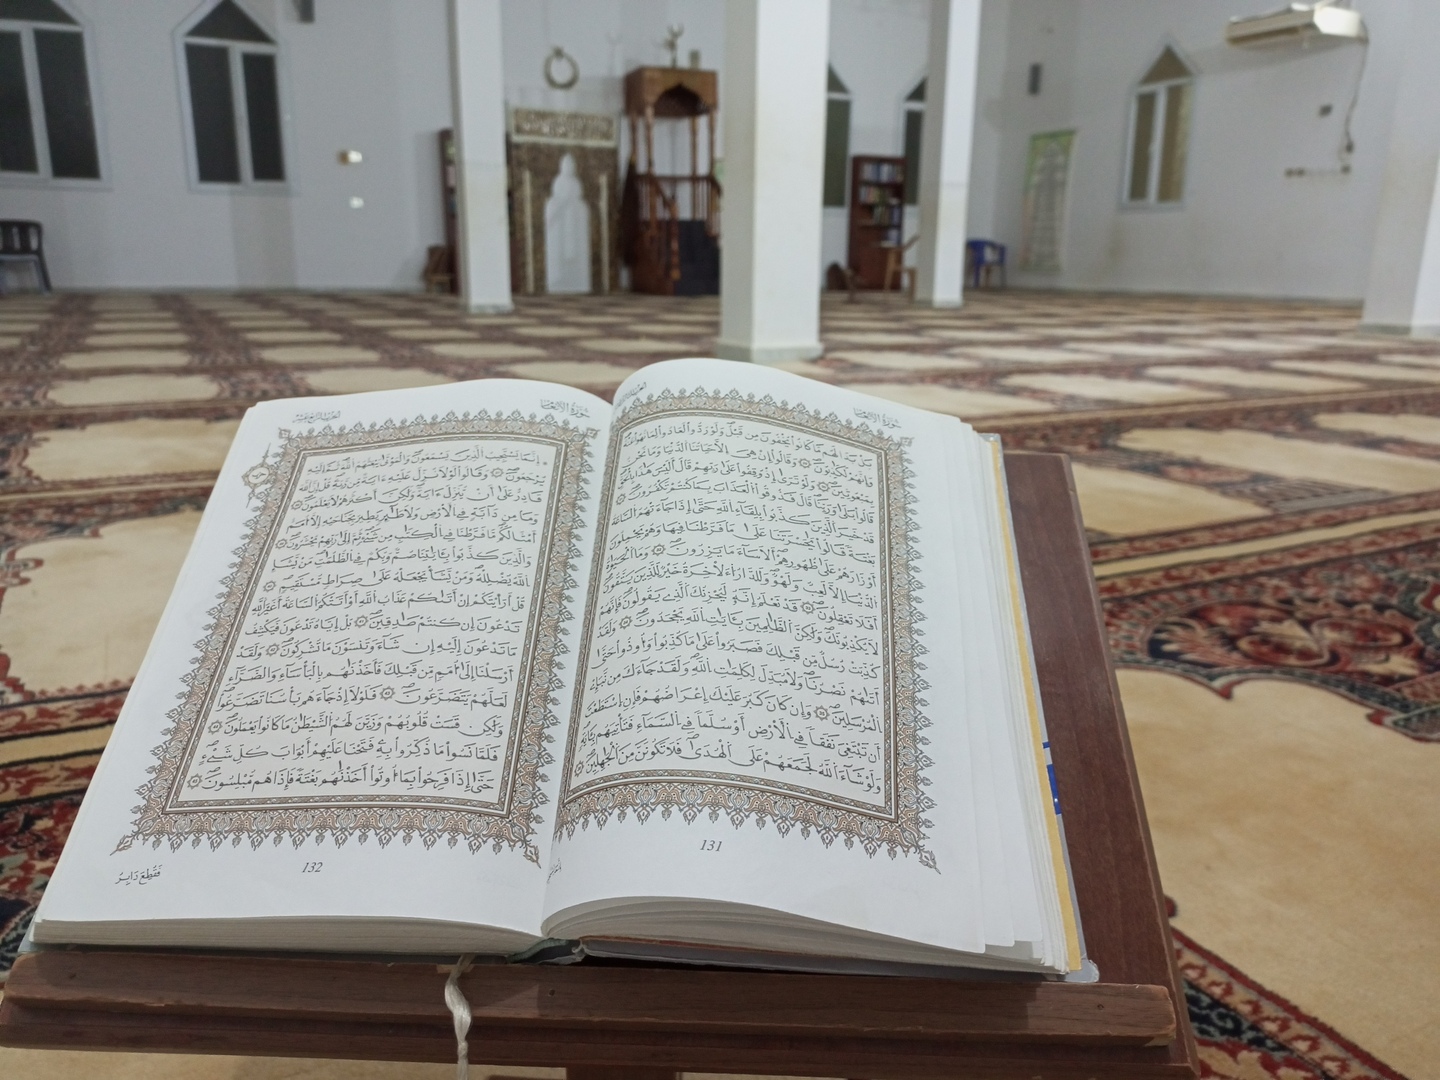 سُورَةُ الأَنْعَامِ
بَلْ بَدَا لَهُم مَّا كَانُوا۟ يُخْفُونَ مِن قَبْلُ ۖ وَلَوْ رُدُّوا۟ لَعَادُوا۟ لِمَا نُهُوا۟ عَنْهُ
وَإِنَّهُمْ لَكَٰذِبُونَ ٢٨ وَقَالُوٓا۟ إِنْ هِىَ إِلَّا حَيَاتُنَا ٱلدُّنْيَا وَمَا نَحْنُ
بِمَبْعُوثِينَ ٢٩ وَلَوْ تَرَىٰٓ إِذْ وُقِفُوا۟ عَلَىٰ رَبِّهِمْ ۚ قَالَ أَلَيْسَ هَٰذَا بِٱلْحَقِّ ۚ
قَالُوا۟ بَلَىٰ وَرَبِّنَا ۚ قَالَ فَذُوقُوا۟ ٱلْعَذَابَ بِمَا كُنتُمْ تَكْفُرُونَ ٣٠
قَدْ خَسِرَ ٱلَّذِينَ كَذَّبُوا۟ بِلِقَآءِ ٱللَّهِ ۖ حَتَّىٰٓ إِذَا جَآءَتْهُمُ ٱلسَّاعَةُ
بَغْتَةً قَالُوا۟ يَٰحَسْرَتَنَا عَلَىٰ مَا فَرَّطْنَا فِيهَا وَهُمْ يَحْمِلُونَ
أَوْزَارَهُمْ عَلَىٰ ظُهُورِهِمْ ۚ أَلَا سَآءَ مَا يَزِرُونَ ٣١ وَمَا ٱلْحَيَوٰةُ
ٱلدُّنْيَآ إِلَّا لَعِبٌ وَلَهْوٌ ۖ وَلَلدَّارُ ٱلْءَاخِرَةُ خَيْرٌ لِّلَّذِينَ يَتَّقُونَ ۗ
أَفَلَا تَعْقِلُونَ ٣٢ قَدْ نَعْلَمُ إِنَّهُۥ لَيَحْزُنُكَ ٱلَّذِى يَقُولُونَ ۖ فَإِنَّهُمْ
لَا يُكَذِّبُونَكَ وَلَٰكِنَّ ٱلظَّٰلِمِينَ بِـَٔايَٰتِ ٱللَّهِ يَجْحَدُونَ ٣٣ وَلَقَدْ
كُذِّبَتْ رُسُلٌ مِّن قَبْلِكَ فَصَبَرُوا۟ عَلَىٰ مَا كُذِّبُوا۟ وَأُوذُوا۟ حَتَّىٰٓ
أَتَىٰهُمْ نَصْرُنَا ۚ وَلَا مُبَدِّلَ لِكَلِمَٰتِ ٱللَّهِ ۚ وَلَقَدْ جَآءَكَ مِن نَّبَإِى۟
ٱلْمُرْسَلِينَ ٣٤ وَإِن كَانَ كَبُرَ عَلَيْكَ إِعْرَاضُهُمْ فَإِنِ ٱسْتَطَعْتَ
أَن تَبْتَغِىَ نَفَقًا فِى ٱلْأَرْضِ أَوْ سُلَّمًا فِى ٱلسَّمَآءِ فَتَأْتِيَهُم بِـَٔايَةٍ ۚ
وَلَوْ شَآءَ ٱللَّهُ لَجَمَعَهُمْ عَلَى ٱلْهُدَىٰ ۚ فَلَا تَكُونَنَّ مِنَ ٱلْجَٰهِلِينَ ٣٥
131
سُورَةُ الأَنْعَامِ
إِنَّمَا يَسْتَجِيبُ ٱلَّذِينَ يَسْمَعُونَ ۘ وَٱلْمَوْتَىٰ يَبْعَثُهُمُ ٱللَّهُ ثُمَّ إِلَيْهِ
يُرْجَعُونَ ٣٦ وَقَالُوا۟ لَوْلَا نُزِّلَ عَلَيْهِ ءَايَةٌ مِّن رَّبِّهِۦ ۚ قُلْ إِنَّ ٱللَّهَ
قَادِرٌ عَلَىٰٓ أَن يُنَزِّلَ ءَايَةً وَلَٰكِنَّ أَكْثَرَهُمْ لَا يَعْلَمُونَ ٣٧
وَمَا مِن دَآبَّةٍ فِى ٱلْأَرْضِ وَلَا طَٰٓئِرٍ يَطِيرُ بِجَنَاحَيْهِ إِلَّآ أُمَمٌ
أَمْثَالُكُم ۚ مَّا فَرَّطْنَا فِى ٱلْكِتَٰبِ مِن شَىْءٍ ۚ ثُمَّ إِلَىٰ رَبِّهِمْ يُحْشَرُونَ ٣٨
وَٱلَّذِينَ كَذَّبُوا۟ بِـَٔايَٰتِنَا صُمٌّ وَبُكْمٌ فِى ٱلظُّلُمَٰتِ ۗ مَن يَشَإِ
ٱللَّهُ يُضْلِلْهُ وَمَن يَشَأْ يَجْعَلْهُ عَلَىٰ صِرَٰطٍ مُّسْتَقِيمٍ ٣٩
قُلْ أَرَءَيْتَكُمْ إِنْ أَتَىٰكُمْ عَذَابُ ٱللَّهِ أَوْ أَتَتْكُمُ ٱلسَّاعَةُ أَغَيْرَ ٱللَّهِ
تَدْعُونَ إِن كُنتُمْ صَٰدِقِينَ ٤٠ بَلْ إِيَّاهُ تَدْعُونَ فَيَكْشِفُ
مَا تَدْعُونَ إِلَيْهِ إِن شَآءَ وَتَنسَوْنَ مَا تُشْرِكُونَ ٤١ وَلَقَدْ
أَرْسَلْنَآ إِلَىٰٓ أُمَمٍ مِّن قَبْلِكَ فَأَخَذْنَٰهُم بِٱلْبَأْسَآءِ وَٱلضَّرَّآءِ
لَعَلَّهُمْ يَتَضَرَّعُونَ ٤٢ فَلَوْلَآ إِذْ جَآءَهُم بَأْسُنَا تَضَرَّعُوا۟
وَلَٰكِن قَسَتْ قُلُوبُهُمْ وَزَيَّنَ لَهُمُ ٱلشَّيْطَٰنُ مَا كَانُوا۟ يَعْمَلُونَ ٤٣
فَلَمَّا نَسُوا۟ مَا ذُكِّرُوا۟ بِهِۦ فَتَحْنَا عَلَيْهِمْ أَبْوَٰبَ كُلِّ شَىْءٍ
حَتَّىٰٓ إِذَا فَرِحُوا۟ بِمَآ أُوتُوٓا۟ أَخَذْنَٰهُم بَغْتَةً فَإِذَا هُم مُّبْلِسُونَ ٤٤
فَقُطِعَ دَابِرُ
132